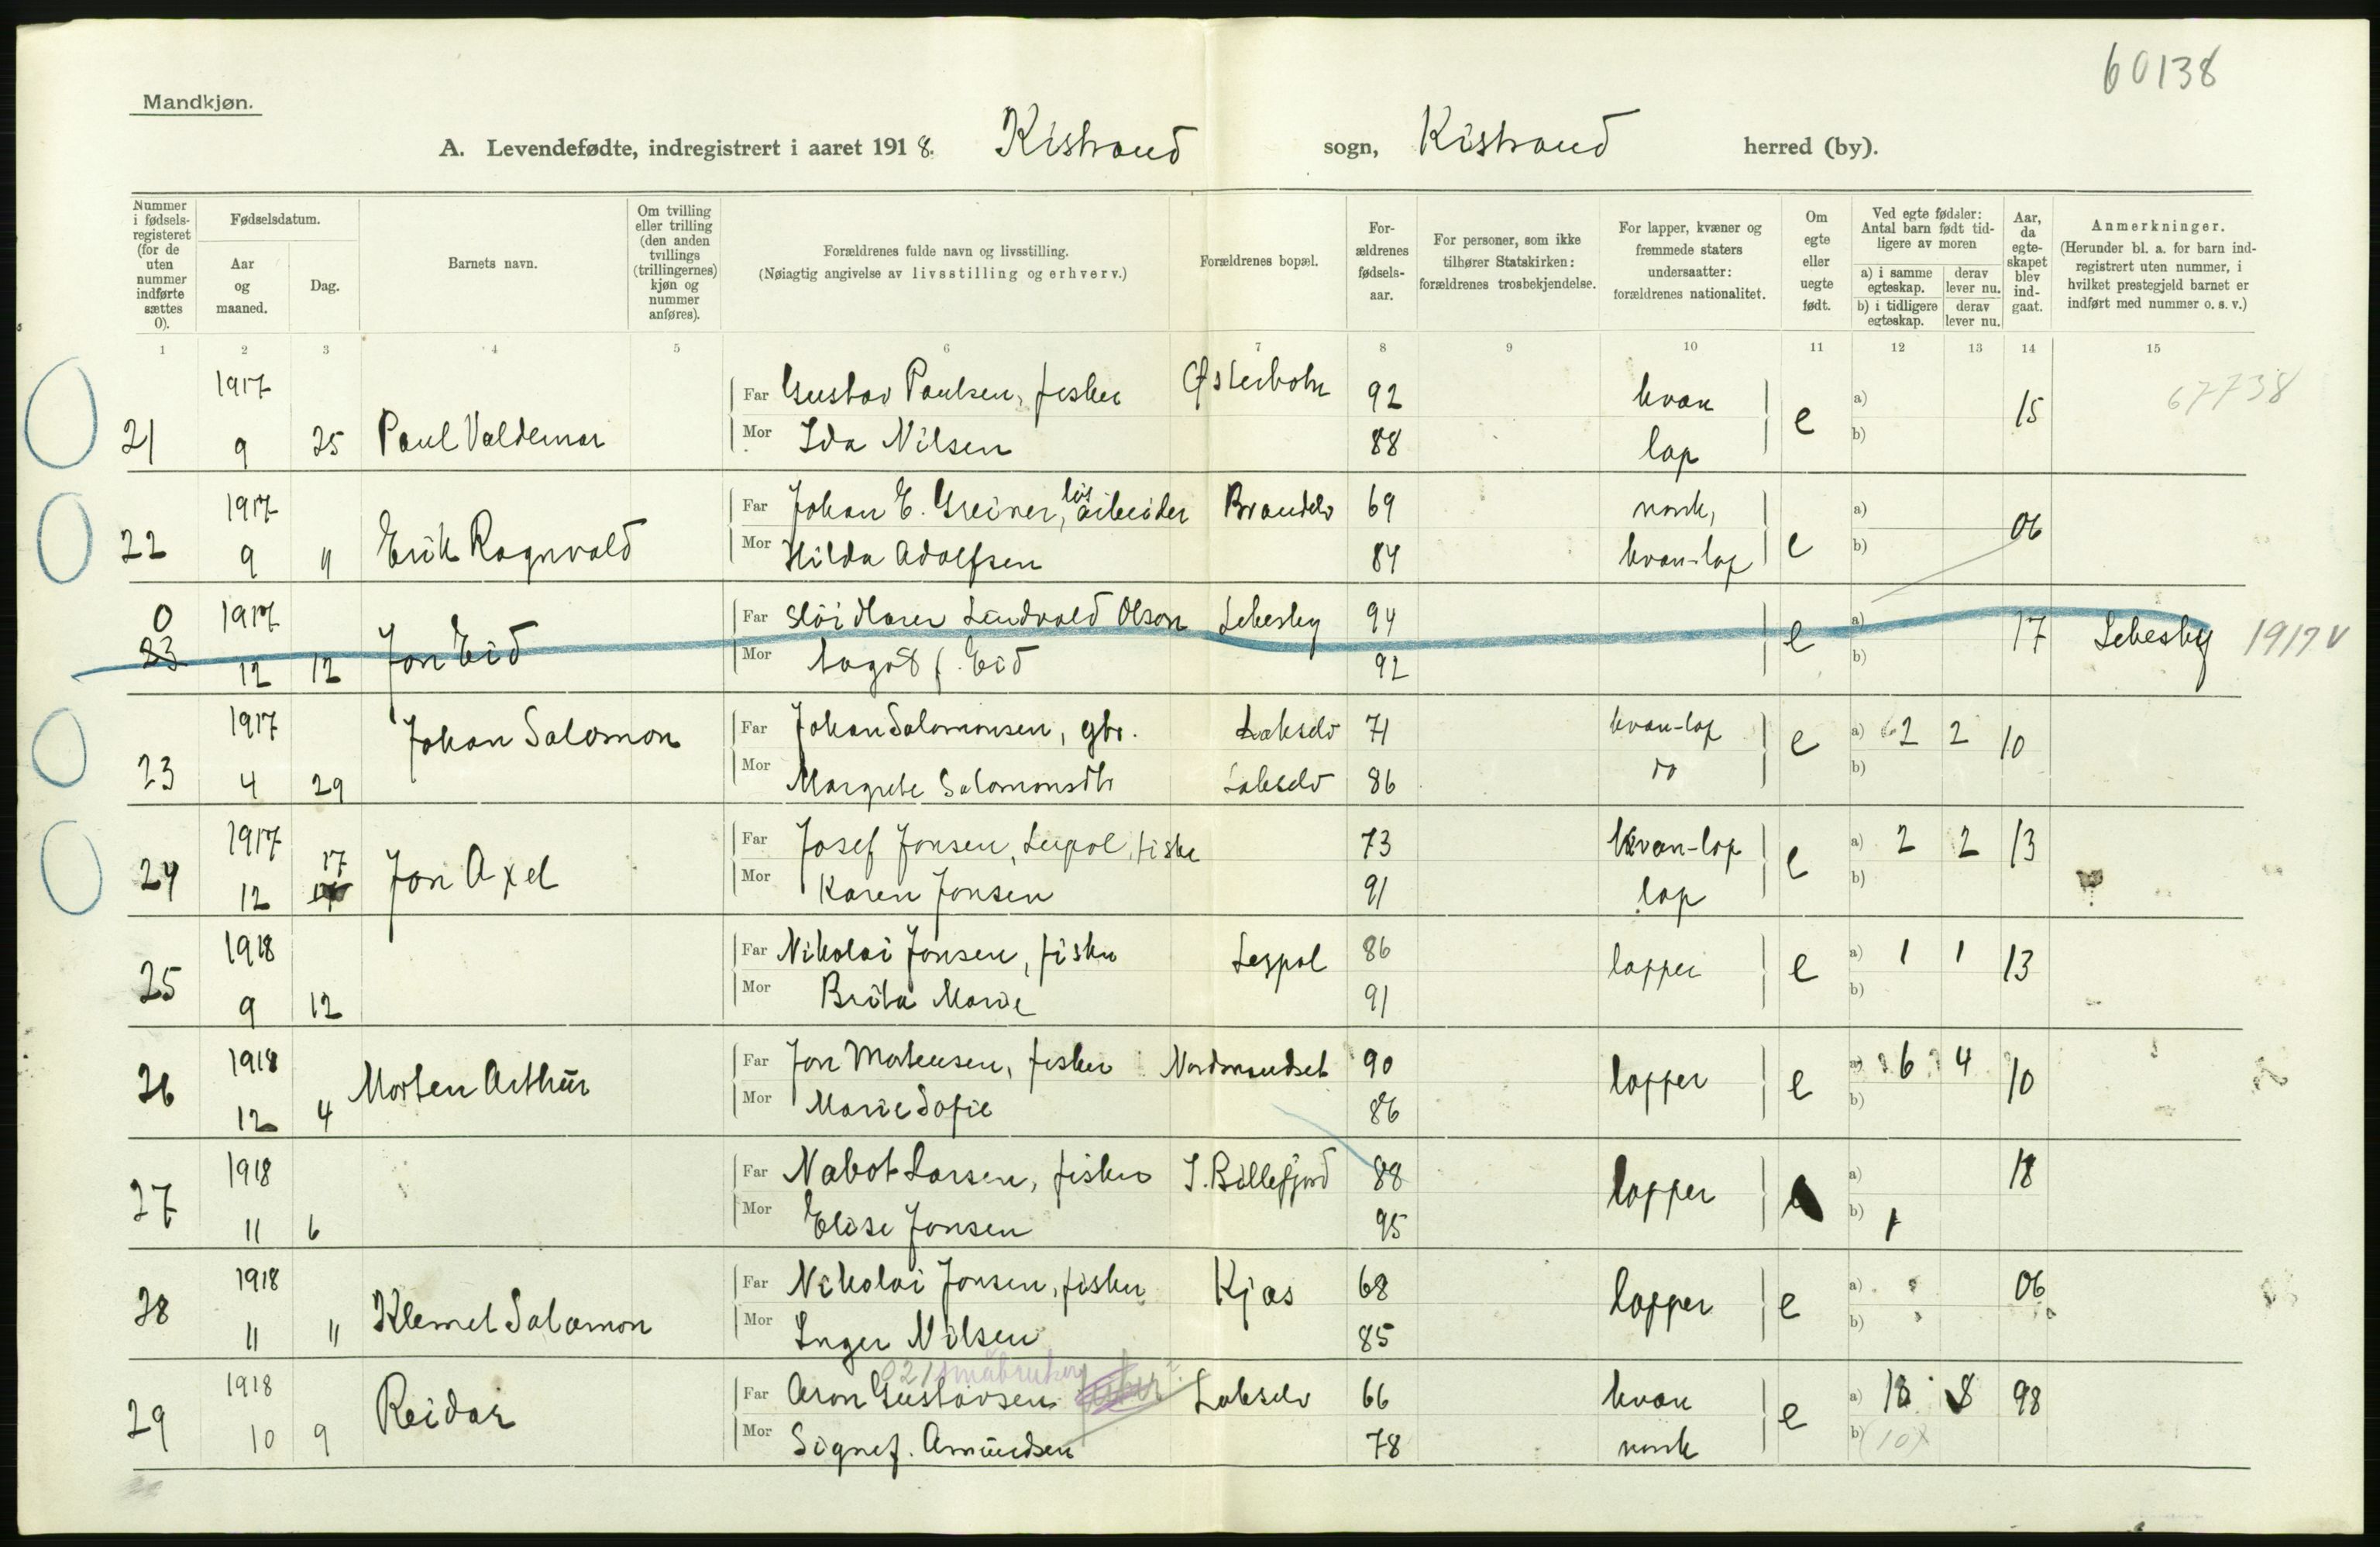 60138
Mandkjøn.
A. Levendefødte, indregistrert i aaret 1918. Kistrand sogn, Kistrand herred (by).
Nummer i fødsels-registeret (for de uten nummer indførte sættes 0).
Fødselsdatum.
Aar og maaned.
Dag.
Barnets navn.
Om tvilling eller trilling (den anden tvillings (trillingernes) kjøn og nummer anføres).
Forældrenes fulde navn og livsstilling.
(Nøiagtig angivelse av livsstilling og erhverv.)
Forældrenes bopæl.
For-ældrenes fødsels-aar.
For personer, som ikke tilhører Statskirken: forældrenes trosbekjendelse.
For lapper, kvæner og fremmede staters undersaatter: forældrenes nationalitet.
Om egte eller uegte født.
Ved egte fødsler: Antal barn født tid-ligere av moren
a) i samme egteskap. derav lever nu.
b) i tidligere egteskap. derav lever nu.
Aar, da egte-skapet blev ind-gaat.
Anmerkninger.
(Herunder bl. a. for barn ind-registrert uten nummer, i hvilket prestegjeld barnet er indført med nummer o. s. v.)
1 2 3 4 5 6 7 8 9 10 11 12 13 14 15
1917 Far Gustav Paulsen, fisker 92 kvæn a) 15 67738
21 9 25 Paul Valdemar Mor Ida Nilsen 88 lap e b)
1917 Far Johan E. Greiner, løsarbeider Brandelv 69 norsk, a) 06
22 9 " Erik Ragnvald Mor Hilda Adolfsen 84 kvæn-lap e b)
0 1917 Far Lindvald Olsen Lebesby 94 a) 17 Lebesby 1917 v
23 12 12 Jon Eid Mor Aagot f. Eid 92 e b)
1917 Johan Salomon Far Johan Salomonsen, gbr. Lakselv 71 kvæn-lap e a) 2 2 10
23 4 29 Mor Margrete Salomonsdtr Lakselv 86 do b)
1917 17 Far Josef Jonsen, Leipol, fisker 73 kvæn-lap a) 2 2 13
24 12 Jon Axel Mor Karen Jonsen 91 lap e b)
1918 Far Nikolai Jonsen, fisker Leipol 86 lapper e a) 1 1 13
25 9 12 Mor Brita Marie 91 b)
1918 Far Jon Mortensen, fisker 90 lapper e a) 6 4 10
26 12 4 Morten Arthur Mor Marie Sofie 86 b)
1918 Far Nabot Larsen, fisker I. Billefjord 88 lapper a) 18
27 11 6 Mor Elise Jonsen 95 b) 1
1918 Far Nikolai Jonsen, fisker Kjæs 68 lapper e a) 06
28 11 " Klemet Salomon Mor Inger Nilsen 85 b)
021 småbruker
1918 Far Aron Gustavsen fisker Lakselv 66 kvæn e a) 8 98
29 10 9 Reidar Mor Signe f. Amundsen 78 norsk b) (10)